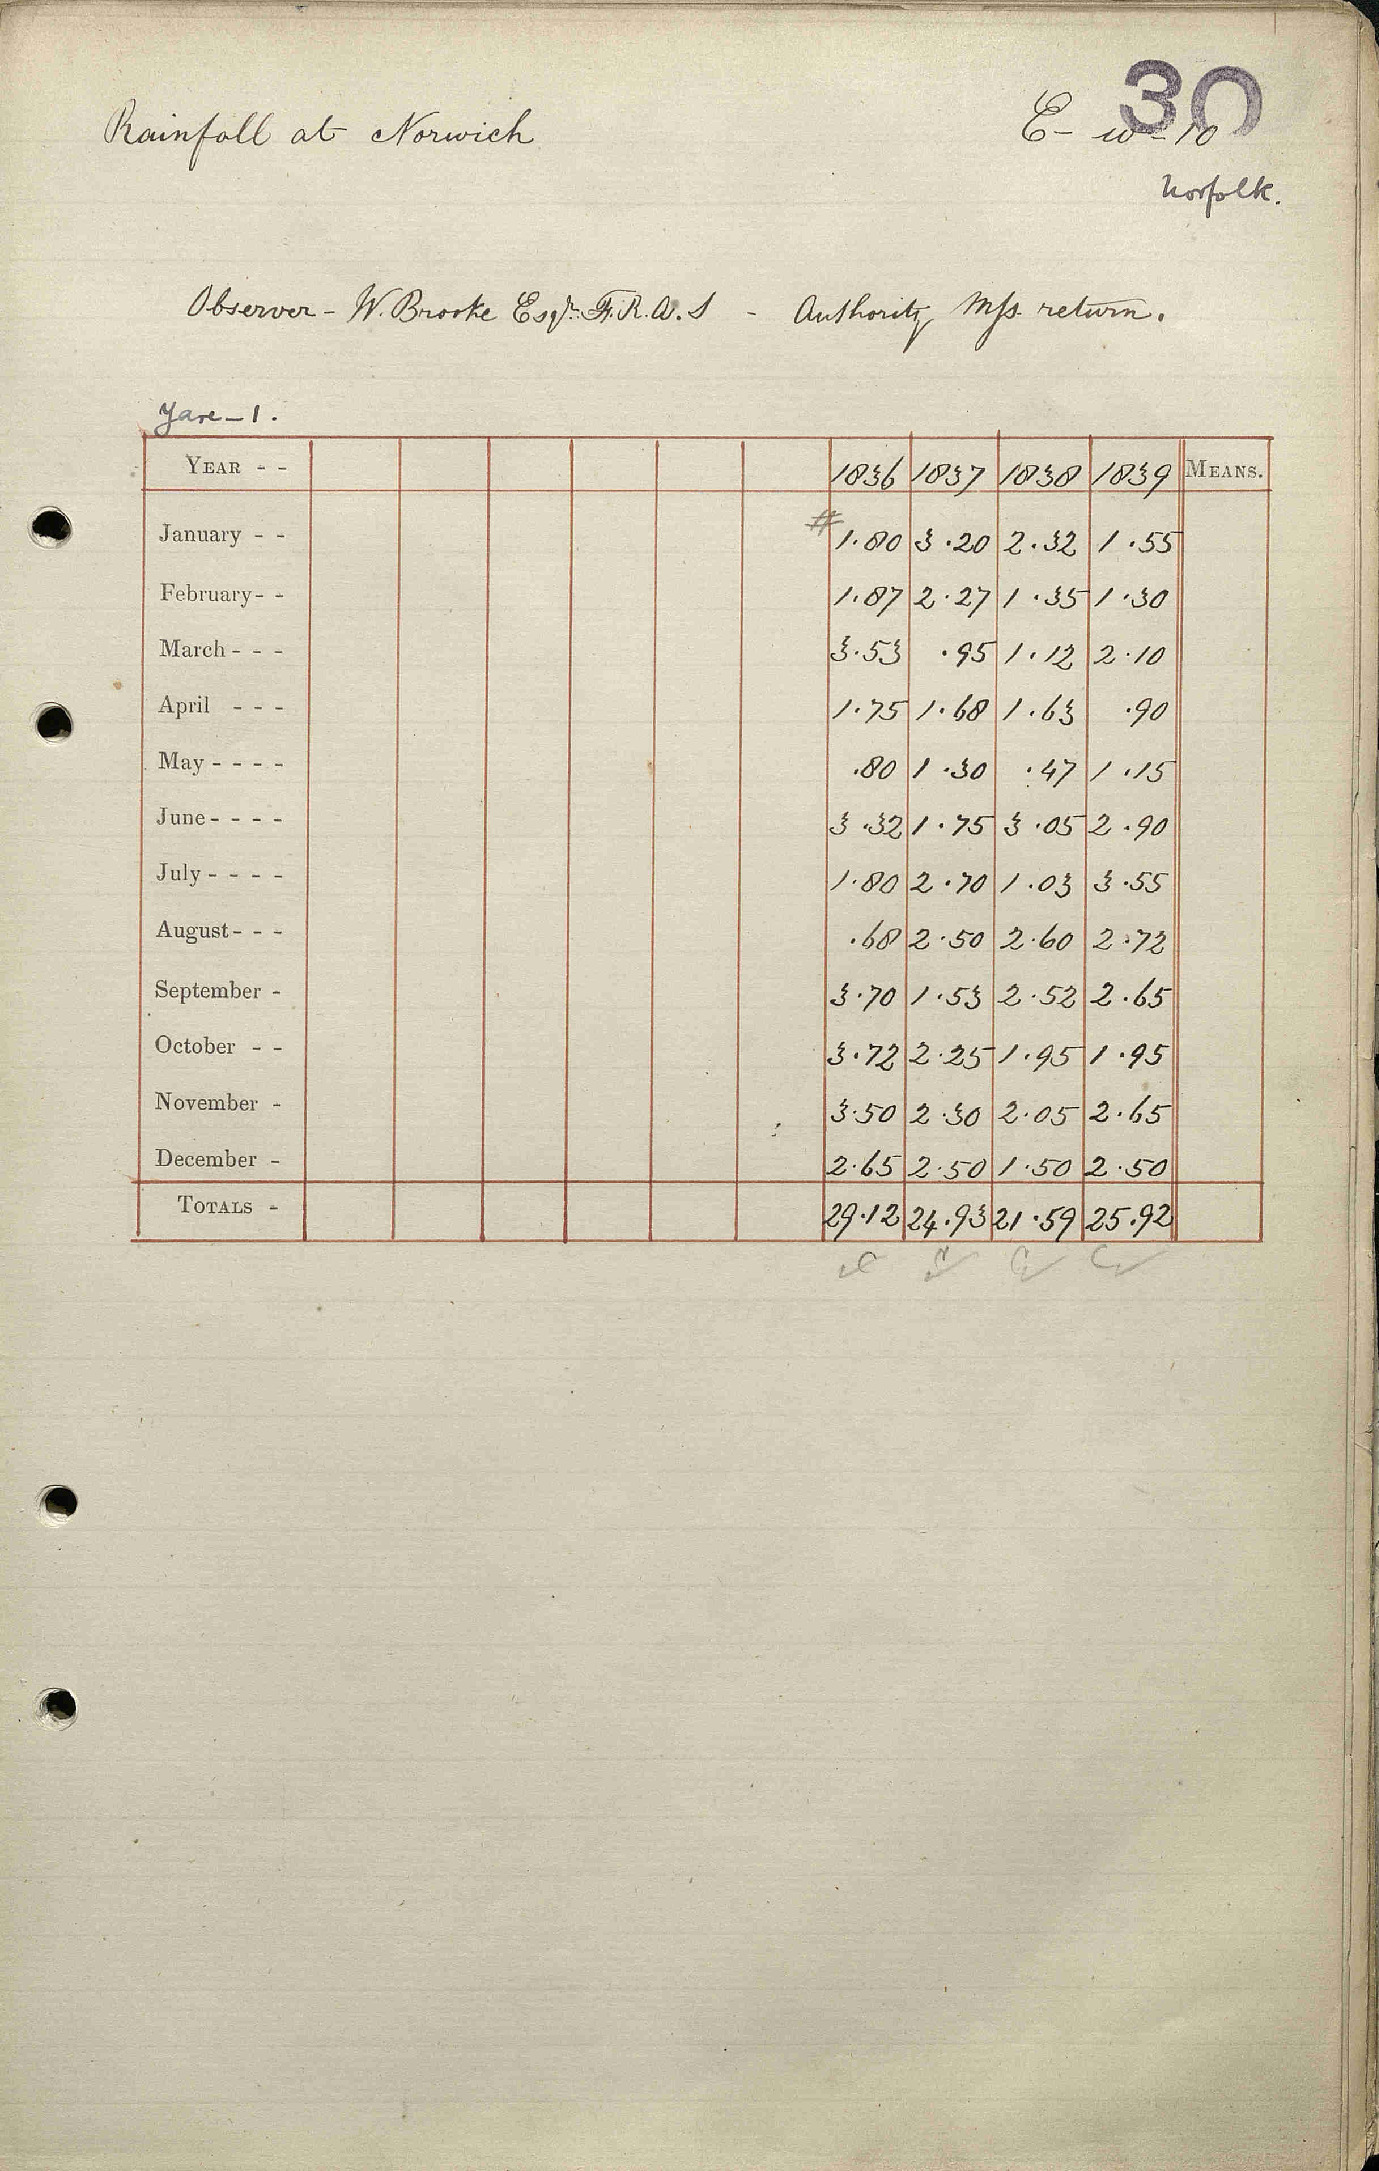 30
Rainfall at Norwich E - w - 10
Norfolk.
Observer - W. Brooke Esqr. F.R.A.S - Authority Mss. return.
Yare - 1.
YEAR - - 1836 1837 1838 1839 MEANS.
January - - # 1.80 3.20 2.32 1.55
February - - 1.87 2.27 1.35 1.30
March - - - 3.53 .95 1.12 2.10
April - - - 1.75 1.68 1.63 .90
May - - - - .80 1.30 .47 1.15
June - - - - 3.32 1.75 3.05 2.90
July - - - - 1.80 2.70 1.03 3.55
August - - - .68 2.50 2.60 2.72
September - 3.70 1.53 2.52 2.65
October - - 3.72 2.25 1.95 1.95
November - 3.50 2.30 2.05 2.65
December - 2.65 2.50 1.50 2.50
TOTALS - 29.12 24.93 21.59 25.92